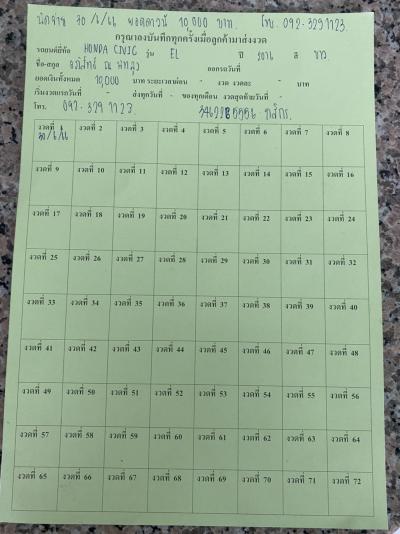 นัดจ่าย 30/6/66 ยอดดาวน์ 10,000 บาท. โทร. 092-3291123.
กรุณาลงบันทึกทุกครั้งเมื่อลูกค้ามาส่งงวด
รถยนต์ยี่ห้อ HONDA CIVIC รุ่น EL ปี 2016 สี ขาว
ชื่อ-สกุล ณ พัทลุง ออกรถวันที่
ยอดเงินทั้งหมด 10,000 บาท ระยะเวลาผ่อน - งวด งวดละ - บาท
เริ่มงวดแรกวันที่ - ส่งทุกวันที่ - ของทุกเดือน งวดสุดท้ายวันที่ -
โทร. 092-329 1123. กสิกร.
งวดที่ 1 งวดที่ 2 งวดที่ 3 งวดที่ 4 งวดที่ 5 งวดที่ 6 งวดที่ 7 งวดที่ 8
30/6/66
งวดที่ 9 งวดที่ 10 งวดที่ 11 งวดที่ 12 งวดที่ 13 งวดที่ 14 งวดที่ 15 งวดที่ 16
งวดที่ 17 งวดที่ 18 งวดที่ 19 งวดที่ 20 งวดที่ 21 งวดที่ 22 งวดที่ 23 งวดที่ 24
งวดที่ 25 งวดที่ 26 งวดที่ 27 งวดที่ 28 งวดที่ 29 งวดที่ 30 งวดที่ 31 งวดที่ 32
งวดที่ 33 งวดที่ 34 งวดที่ 35 งวดที่ 36 งวดที่ 37 งวดที่ 38 งวดที่ 39 งวดที่ 40
งวดที่ 41 งวดที่ 42 งวดที่ 43 งวดที่ 44 งวดที่ 45 งวดที่ 46 งวดที่ 47 งวดที่ 48
งวดที่ 49 งวดที่ 50 งวดที่ 51 งวดที่ 52 งวดที่ 53 งวดที่ 54 งวดที่ 55 งวดที่ 56
งวดที่ 57 งวดที่ 58 งวดที่ 59 งวดที่ 60 งวดที่ 61 งวดที่ 62 งวดที่ 63 งวดที่ 64
งวดที่ 65 งวดที่ 66 งวดที่ 67 งวดที่ 68 งวดที่ 69 งวดที่ 70 งวดที่ 71 งวดที่ 72